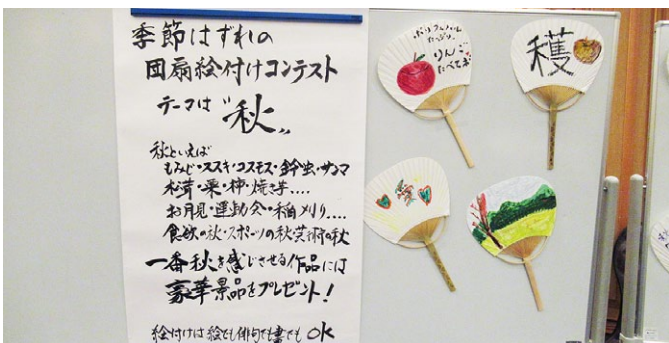 季節はずれの
団扇絵付けコンテスト
テーマは"秋"
秋といえば
もみじ・ススキ・コスモス・鈴虫・サンマ
松茸・栗・柿・焼き芋....
お月見・運動会・稲刈り....
食欲の秋・スポーツの秋芸術の秋
一番秋を感じさせる作品には
豪華景品をプレゼント!
絵付けは絵でも俳句でも書でもOK
ポリフェノール
たっぷり。
りんご
たべてネ
穫